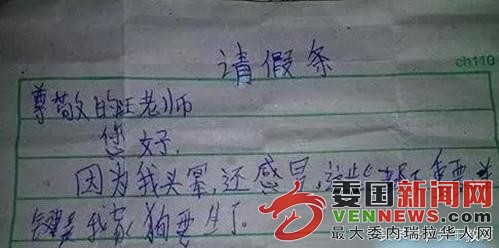 请假条
ch110
尊敬的旺老师
您好,
因为我头晕,还感冒,这些都不重要,关
键是我家狗要生了。
委国新闻网
VENNEWS.COM
最大委内瑞拉华人网